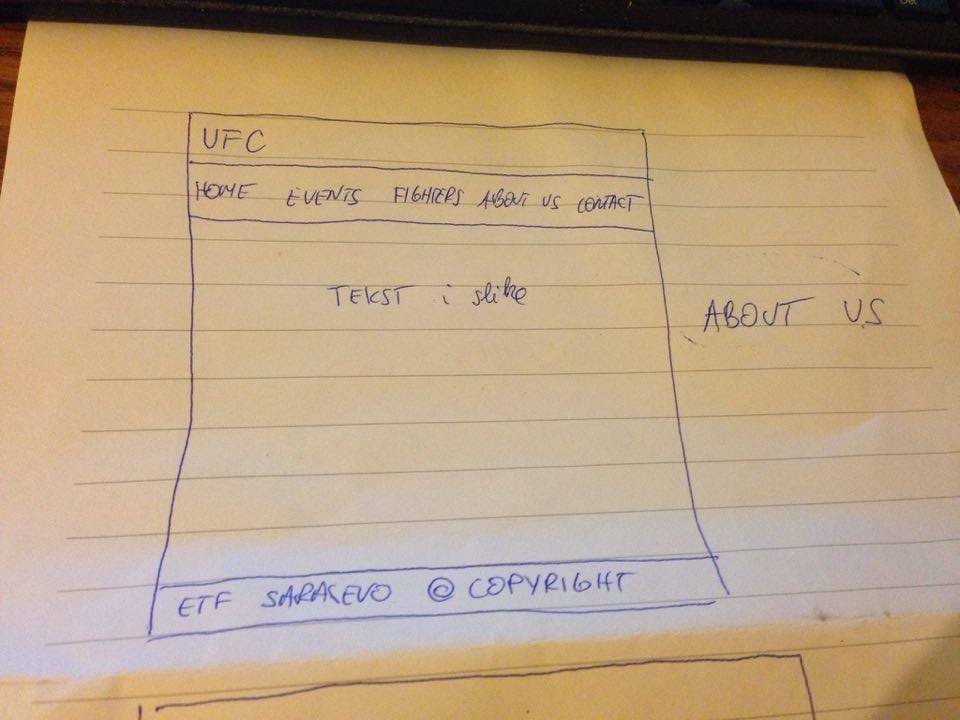 UFC
HOME EVENTS FIGHTERS ABOUT US CONTACT
TEKST i slike
ABOUT US
ETF SARAJEVO © COPYRIGHT